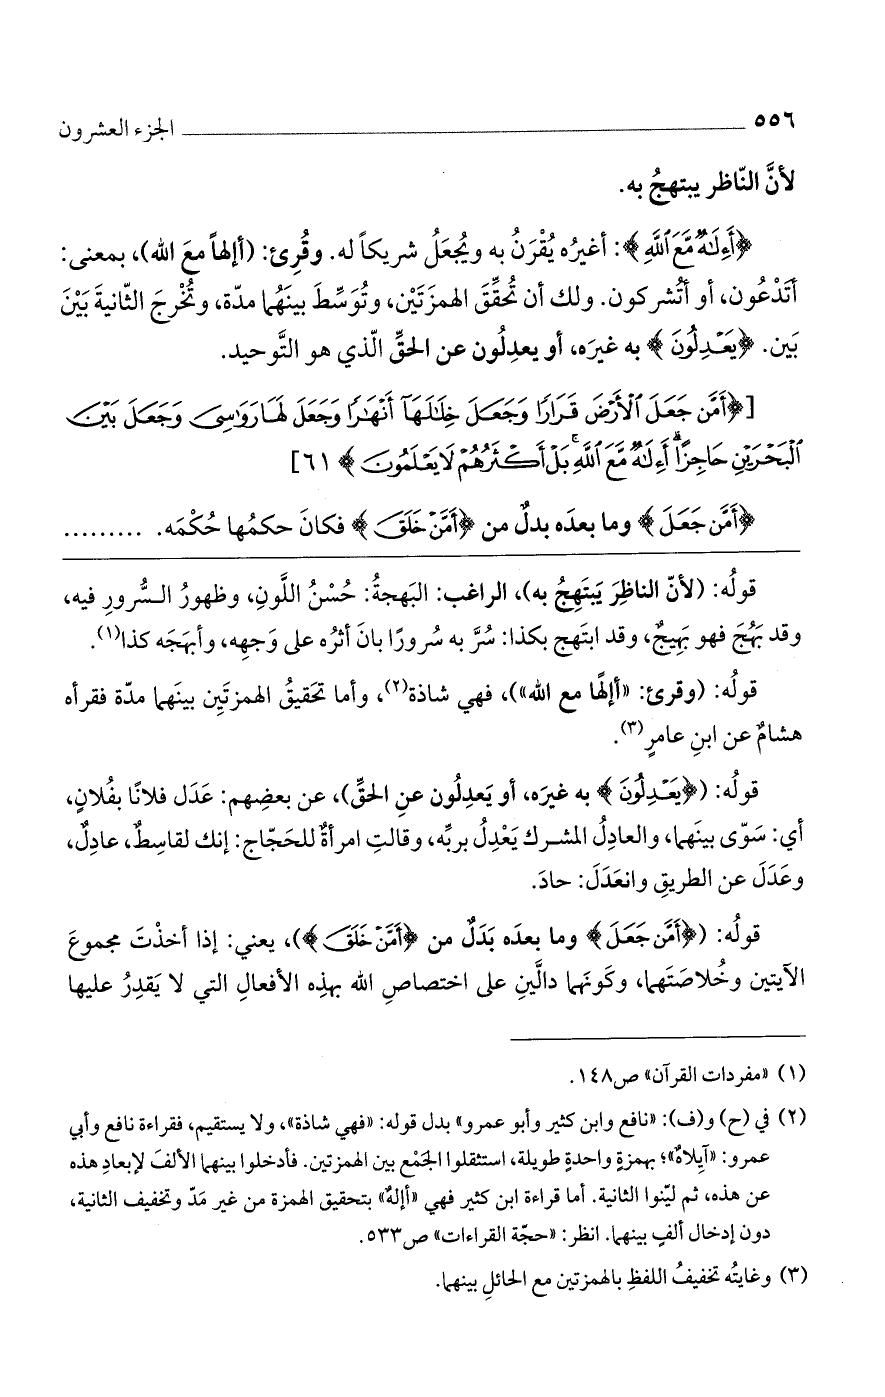 ٥٥٦ الجزء العشرون
لأنَّ النّاظر يبتهجُ به.
﴿أَءِلَٰهٌ مَّعَ ٱللَّهِ﴾: أغيرُه يُقْرَنُ به ويُجعَلُ شريكاً له. وقُرِئ: (أإلهاً معَ الله)، بمعنى:
أتَدْعُون، أو أتُشركون. ولك أن تُحقِّقَ الهمزتَيْن، وتُوَسِّطَ بينَهُما مدّة، وتُخْرجَ الثّانيةَ بَيْنَ
بَين. ﴿يَعْدِلُونَ﴾ به غيرَه، أو يعدِلُون عن الحقِّ الّذي هو التَّوحيد.
[﴿أَمَّن جَعَلَ ٱلْأَرْضَ قَرَارًا وَجَعَلَ خِلَٰلَهَآ أَنْهَٰرًا وَجَعَلَ لَهَا رَوَٰسِىَ وَجَعَلَ بَيْنَ
ٱلْبَحْرَيْنِ حَاجِزًا ۗ أَءِلَٰهٌ مَّعَ ٱللَّهِ ۚ بَلْ أَكْثَرُهُمْ لَا يَعْلَمُونَ﴾ ٦١]
﴿أَمَّن جَعَلَ﴾ وما بعدَه بدلٌ من ﴿أَمَّنْ خَلَقَ﴾ فكانَ حكمُها حُكْمَه. .........
قولُه: (لأنّ الناظِرَ يَبتَهِجُ به)، الراغب: البَهجةُ: حُسْنُ اللَّونِ، وظهورُ السُّرورِ فيه،
وقد بَهُجَ فهو بَهِيجٌ، وقد ابتَهج بكذا: سُرَّ به سُرورًا بانَ أثرُه على وَجهِه، وأبهَجَه كذا(١).
قولُه: (وقرئ: «أإلهًا مع الله»)، فهي شاذة(٢)، وأما تحقيقُ الهمزتَينِ بينَهما مدّة فقرأه
هشامٌ عن ابنِ عامرٍ(٣).
قولُه: (﴿يَعْدِلُونَ﴾ به غيرَه، أو يَعدِلُون عنِ الحقِّ)، عن بعضِهم: عَدَل فلانًا بفُلانٍ،
أي: سَوّى بينَهما، والعادِلُ المشرك يَعْدِلُ بربِّه، وقالتِ امرأةٌ للحَجّاج: إنك لقاسِطٌ، عادِلٌ،
وعَدَلَ عن الطريقِ وانعَدَلَ: حادَ.
قولُه: (﴿أَمَّن جَعَلَ﴾ وما بعدَه بَدَلٌ من ﴿أَمَّنْ خَلَقَ﴾)، يعني: إذا أخذْتَ مجموعَ
الآيتين وخُلاصَتَهما، وكَونَهما دالَّينِ على اختصاصِ الله بهذِه الأفعالِ التي لا يَقدِرُ عليها
(١) «مفردات القرآن» ص١٤٨.
(٢) في (ح) و(ف): «نافع وابن كثير وأبو عمرو» بدل قوله: «فهي شاذة»، ولا يستقيم، فقراءة نافع وأبي
عمرو: «آيِلاهٌ»؛ بهمزةٍ واحدةٍ طويلة، استثقلوا الجَمْع بين الهمزتين. فأدخلوا بينهما الألفَ لإبعادِ هذه
عن هذه، ثم ليّنوا الثانية. أما قراءة ابن كثير فهي «أإلهٌ» بتحقيق الهمزة من غير مَدّ وتخفيف الثانية،
دون إدخال ألفٍ بينهما. انظر: «حجّة القراءات» ص٥٣٣.
(٣) وغايتُه تخفيفُ اللفظِ بالهمزتين مع الحائلِ بينهما.